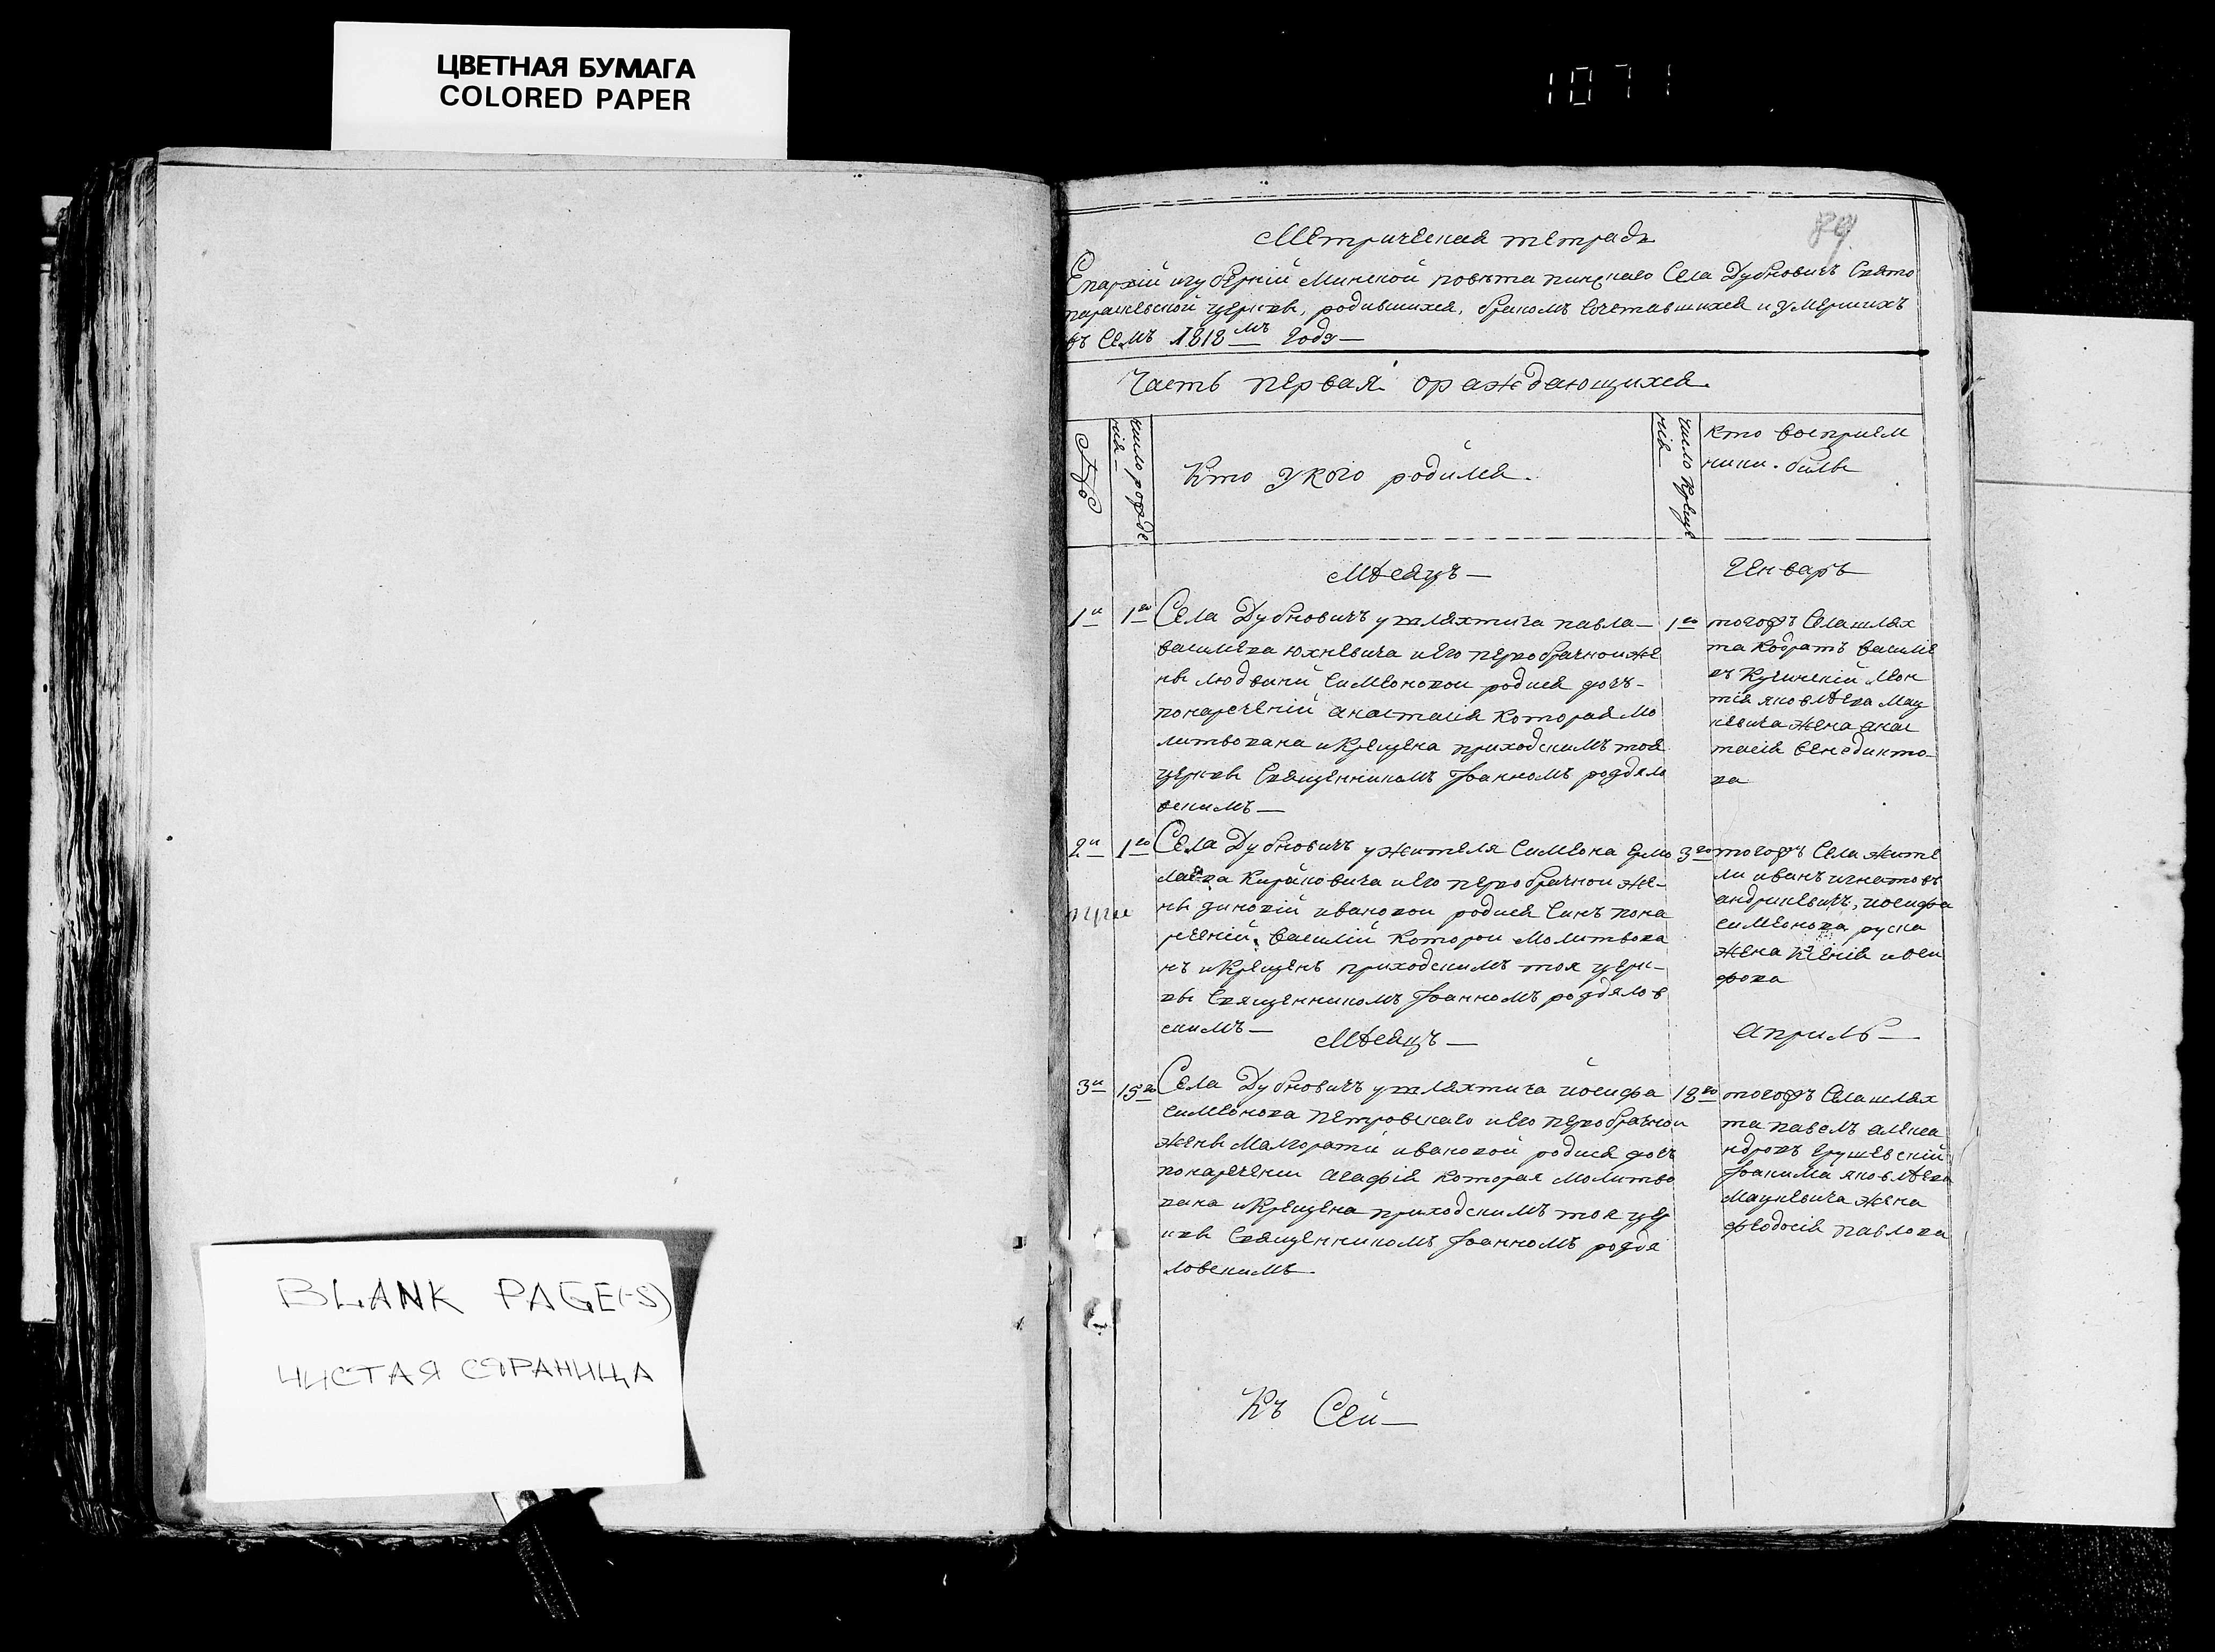 ЦВЕТНАЯ БУМАГА
COLORED PAPER
1071
BLANK PAGE(-S)
ЧИСТАЯ СТРАНИЦА
Метрическая тетрадь
Епархіи игуберніи Минской повѣта пинскаго Села Дубновичъ Свято
параскевской церкви, родившихся, бракомъ Сочетавшихся иумершихъ
въ Семъ 1818мъ годѣ—
Часть первая ораждающихся.
число рожде
нія—
Кто укого родился.
число Креще
нія—
Кто восприем
ники. были
Мѣсяцъ—
Генварь
1й 1го Села Дубновичъ ушляхтича павла—
василева юхневича иего первобрачной же
ны людвики Симеоновой родися дочь-
понареченіи анастасія Которая мо
литвована иКрещена приходскимъ тоя
церкви Священникомъ Іоанномъ роздяло
вскимъ—
1го тогожъ Села шлях
та Кодратъ василіе
въ Кученскій леон
тія яковлѣва мац
кевича жена анас
тасія бенедикто-
ва
2й 1го Села Дубновичъ ужителя Симеона ермо
лаева Кираковича иего первобрачной же-
ны зиновіи ивановой родися Синъ пона
реченіи василій Которой молитвова
нъ иКрещенъ приходскимъ тоя церк-
ви Священникомъ Іоанномъ роздялов
скимъ—
3го тогожъ Села жите
ли иванъ игнатовъ
андриевичъ, иосифа
симеонова руска
жена Ксенія иоси
фова
Мѣсяцъ—
априль—
3й 15го Села Дубновичъ ушляхтича иосифа
симеонова петровскаго иего первобрачной
жены малгоратіи ивановой родися дочь
понареченіи агафія Которая молитво
вана иКрещена приходскимъ тоя цер
кви Священникомъ Іоанномъ роздя
ловскимъ
18го тогожъ Села шлях
та павелъ алекса
ндровъ ерушевскій
Іоакима яковлѣва
мацкевича жена
феодосія павлова
Къ Сей—